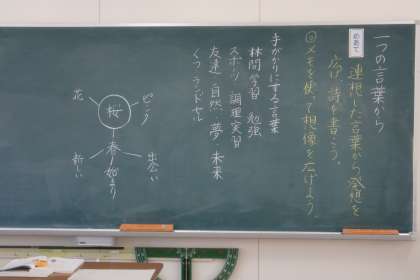 一つの言葉から
めあて
連想した言葉から発想を
広げ、詩を書こう。
◎メモを使って想像を広げよう
手がかりにする言葉
林間学習 勉強
スポーツ 調理実習
友達・自然 夢・未来
くつ ランドセル
ピンク
花
桜
春・始まり
出会い
新しい